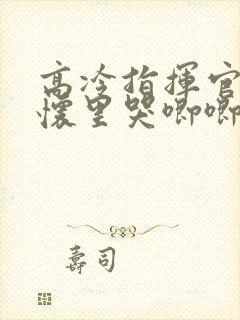 高冷指揮官
懷里哭唧唧
壽司